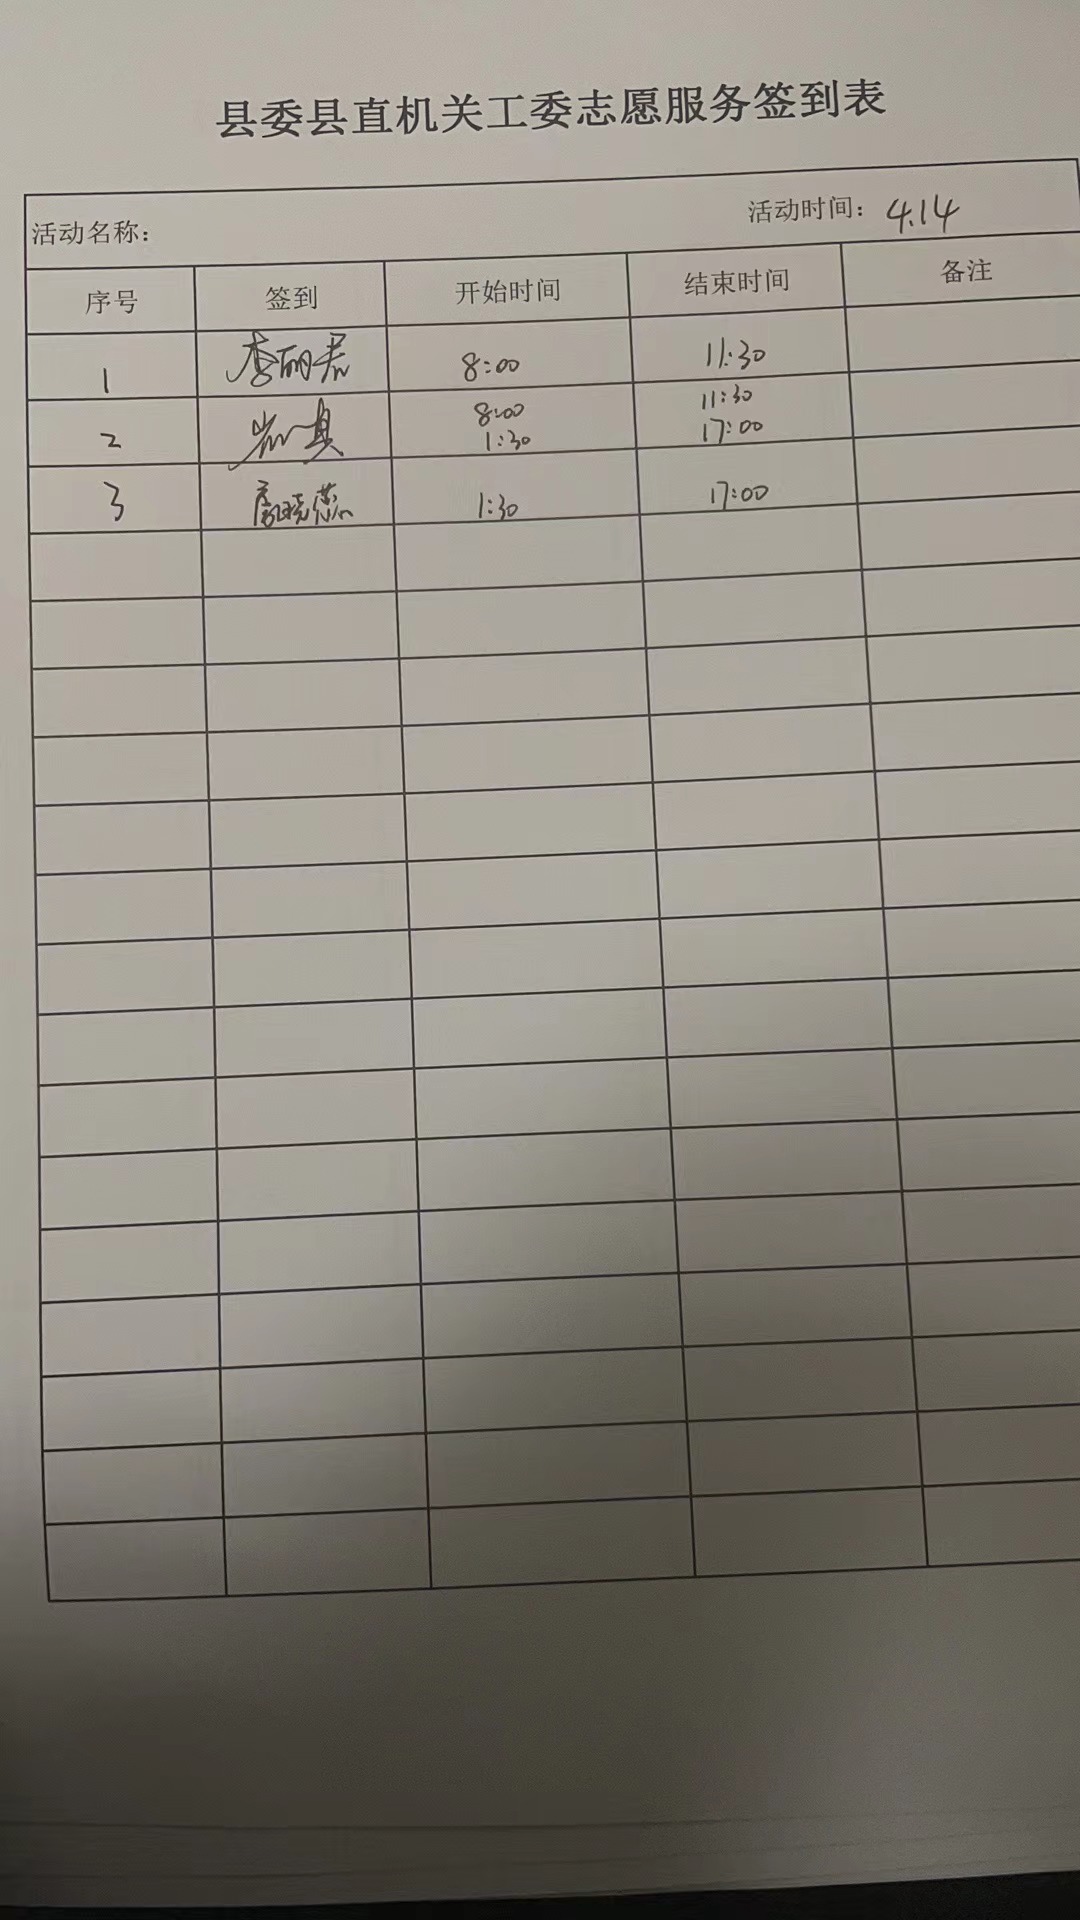 县委县直机关工委志愿服务签到表
活动名称： 活动时间：4.14
序号 签到 开始时间 结束时间 备注
1 李丽君 8:00 11:30
2 8:00 11:30
1:30 17:00
3 1:30 17:00